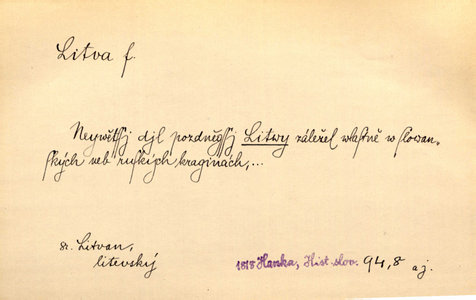 Litva f.
Neywětssj djl pozděgssj Litwy záležel wlastně w slowan-
ských neb ruských kraginách,...
sr. Litvan,
litevský
1818 Hanka, Hist. slov. 94,8 aj.